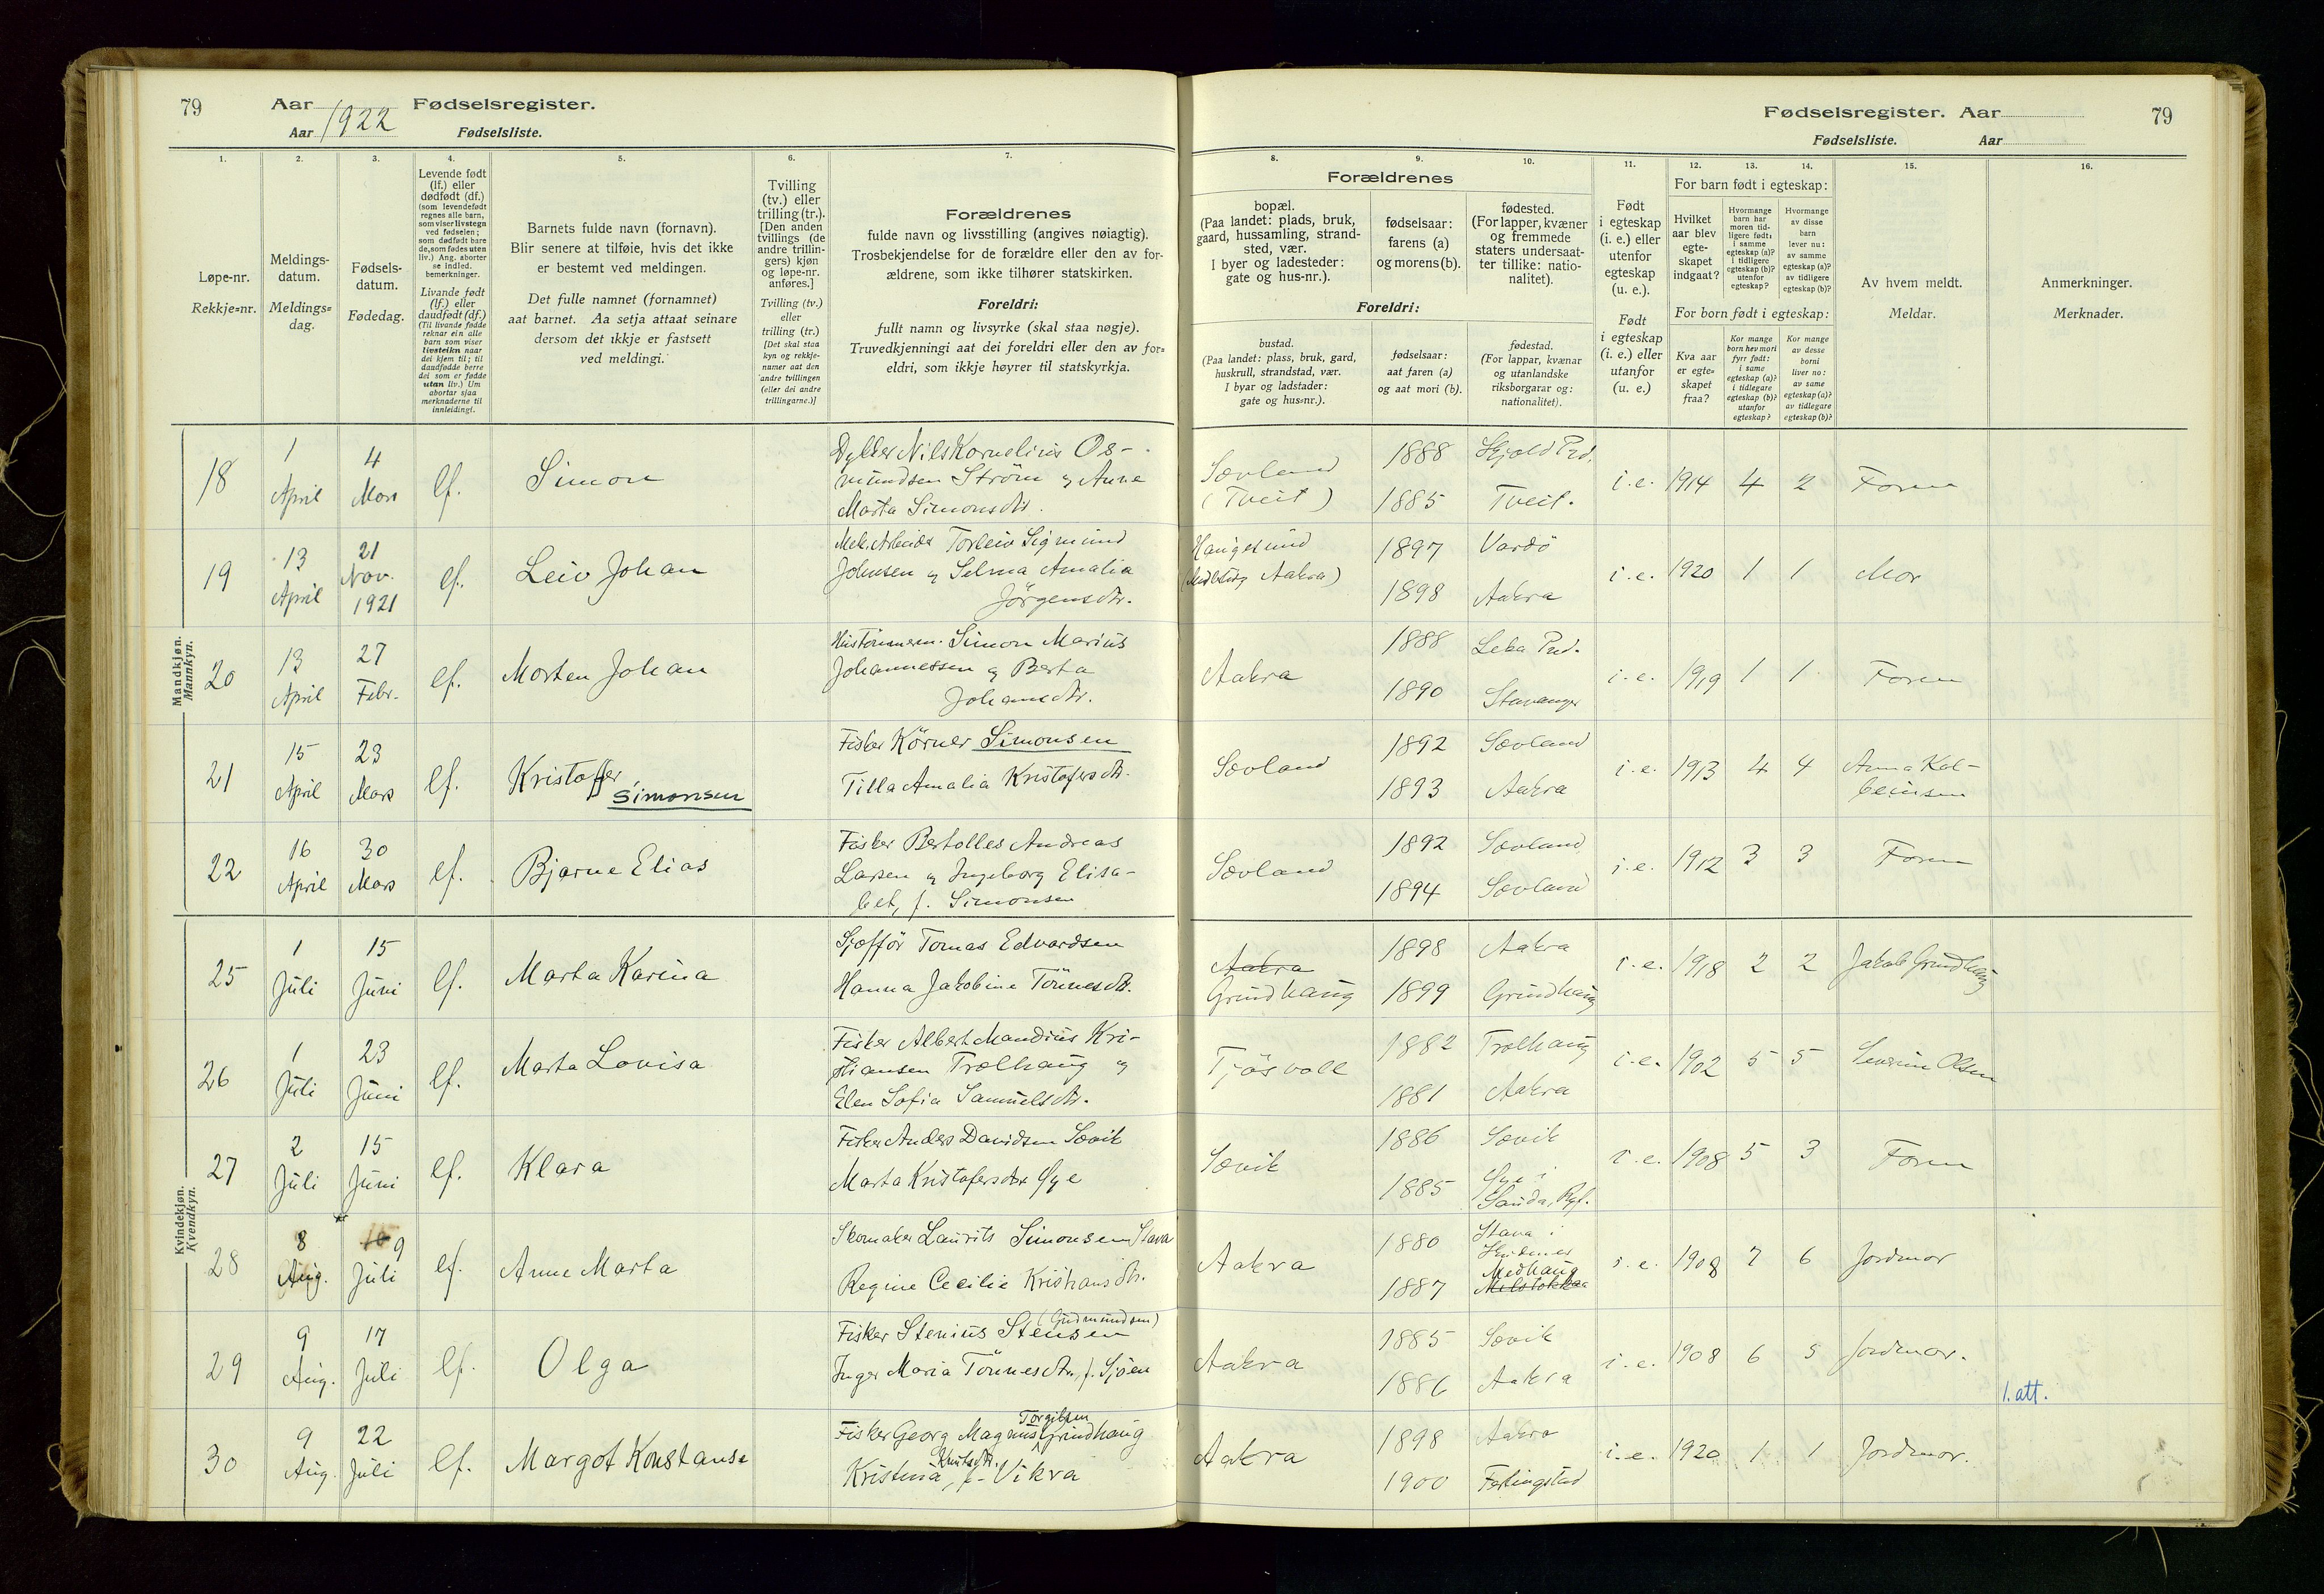 79 Aar 1922 Fødselsregister.
Aar Fødselsliste.
Fødselsregister. Aar 79
Fødselsliste. Aar
1.
Løpe-nr.
Rekkje=nr.
2.
Meldings-
datum.
Meldings=
dag.
3.
Fødsels-
datum.
Fødedag.
4.
Levende født
(lf.) eller
dødfødt (df.)
(som levendefødt
regnes alle barn,
som viser livstegn
ved fødselen;
som dødfødt bare
de, som fødes uten
liv.) Ang. aborter
se indled.
bemerkninger.
Livande født
(lf.) eller
daudfødt (df.)
(Til livande fødde
reknar ein alle
barn som viser
livsteikn naar
dei kjem til; til
daudfødde berre
dei som er fødde
utan liv.) Um
abortar sjaa
merknaderne til
innleidingi.
5.
Barnets fulde navn (fornavn).
Blir senere at tilføie, hvis det ikke
er bestemt ved meldingen.
Det fulle namnet (fornamnet)
aat barnet. Aa setja attaat seinare
dersom det ikkje er fastsett
ved meldingi.
6.
Tvilling
(tv.) eller
trilling (tr.).
[Den anden
tvillings (de
andre trillin-
gers) kjøn
og løpe-nr.
anføres.]
Tvilling (tv.)
eller
trilling (tr.)
[Det skal staa
kyn og rekkje-
namer aat den
andre tvillingen
(eller dei andre
trillingarne.)]
7.
Forældrenes
fulde navn og livsstilling (angives nøiagtig).
Trosbekjendelse for de forældre eller den av for-
ældrene, som ikke tilhører statskirken.
Foreldri:
fullt namn og livsyrke (skal staa nøgje).
Truvedkjenningi aat dei foreldri eller den av for=
eldri, som ikkje høyrer til statskyrkja.
Forældrenes
8.
bopæl.
(Paa landet: plads, bruk,
gaard, hussamling, strand-
sted, vær.
I byer og ladesteder:
gate og hus-nr.).
9.
fødselsaar:
farens (a)
og morens (b).
10.
fødested.
(For lapper, kvæner
og fremmede
staters undersaat-
ter tillike: natio-
nalitet).
Foreldri:
bustad.
(Paa landet: plass, bruk, gard,
huskrull, strandstad, vær.
I byar og ladstader:
gate og hus=nr.).
fødselsaar:
aat faren (a)
og aat mori (b).
fødestad.
(For lappar, kvænar
og utanlandske
riksborgarar og:
nationalitet).
11.
Født
i egteskap
(i. e.) eller
utenfor
egteskap
(u. e.).
Født
i egteskap
(i. e.) eller
utanfor
(u. e.)
12. 13. 14.
For barn født i egteskap:
Hvilket
aar blev
egte-
skapet
indgaat?
Hvormange
barn har
moren tid-
ligere født:
i samme
egteskap (a)?
i tidligere
egteskap (b)?
utenfor
egteskap?
Hvormange
av disse
barn
lever nu:
av samme
egteskap (a)?
av tidligere
egteskap (b)?
For born født i egteskap:
Kva aar
er egte=
skapet
fraa?
Kor mange
born hev mori
fyrr født:
i same
egteskap (a)?
i tidlegare
egteskap (b)?
utanfor
egteskap?
Kor mange
av desse
borni
liver no:
av same
egteskap (a)?
av tidlegare
egteskap (b)?
15.
Av hvem meldt.
Meldar.
16.
Anmerkninger.
Merknader.
Mandkjøn.
Mannkyn.
18 1 April 4 Mars lf. Simon
Nils Kornelius Os-
mundsen Strøm og Anne
Marta Simonsdtr.
Sævland (Tveit) 1888 Skjold Prd. 1885 Tveit. i.e. 1914 4 2 Faren
19 13 April 21 Nov. 1921 lf. Leiv Johan
Torleiv Sigmund
Johnsen og Selma Amalia
Jörgensdtr.
Haugesund Aakra) 1897 Vardö 1898 Aakra i.e. 1920 1 1 Mor
20 13 April 27 Febr. lf. Morten Johan
Simon Marius
Johannessen og Berta
Johansdtr.
Aakra 1888 Prd. 1890 Stavanger i.e. 1919 1 1 Faren
21 15 April 23 Mars lf. Kristoffer Simonsen
Fisker Körner Simonsen
Tilla Amalia Kristofersdtr.
Sævland 1892 Sævland 1893 Aakra i.e. 1913 4 4 Anna Kol-
beinsen
22 16 April 30 Mars lf. Bjarne Elias
Fisker Bertolles Andreas
Larsen og Ingeborg Elisa-
bet, f. Simonsen
Sævland 1892 Sævland 1894 Sævland i.e. 1912 3 3 Faren
Kvindekjøn.
Kvendkyn.
25 1 Juli 15 Juni lf. Marta Karina
Sjofför Tomas Edvardsen
Hanna Jakobine Tönnesdtr.
Aakra Grindhaug 1898 Aakra 1899 Grindhaug i.e. 1918 2 2 Jakob Grindhaug
26 1 Juli 23 Juni lf. Marta Lovisa
Fisker Albert Mandius Kri-
stiansen Trælhaug og
Elen Sofia Samuelsdtr.
Tjösvoll 1882 Trælhaug 1881 Aakra i.e. 1902 5 5 Severin Olsen
27 2 Juli 15 Juni lf. Klara
Fisker Anders Davidsen Sævik
Marta Kristofersdtr Øye
Sævik 1886 Sævik 1885 Øye i Sauda, Ryf. i.e. 1908 5 3 Faren
28 8 Aug. 10 9 Juli lf. Anne Marta
Skomaker Laurits Simonsen Stava
Regine Cecilie Kristiansdtr.
Aakra 1880 Stava i Skudenes 1887 Medhaug i.e. 1908 7 6 Jordmor
29 9 Aug. 17 Juli lf. Olga
Fisker Stenius Stensen (Gudmundsen)
Inger Maria Tönnesdtr., f. Sjöen
Aakra 1885 Sævik 1886 Aakra i.e. 1908 6 5 Jordmor.
1. att.
30 9 Aug. 22 Juli lf. Margot Konstanse
Fisker Georg Magnus Torgilsen Grindhaug
Kristina Knutsdtr., f. Vikra
Aakra 1898 Aakra 1900 Ferkingstad i.e. 1920 1 1 Jordmor.